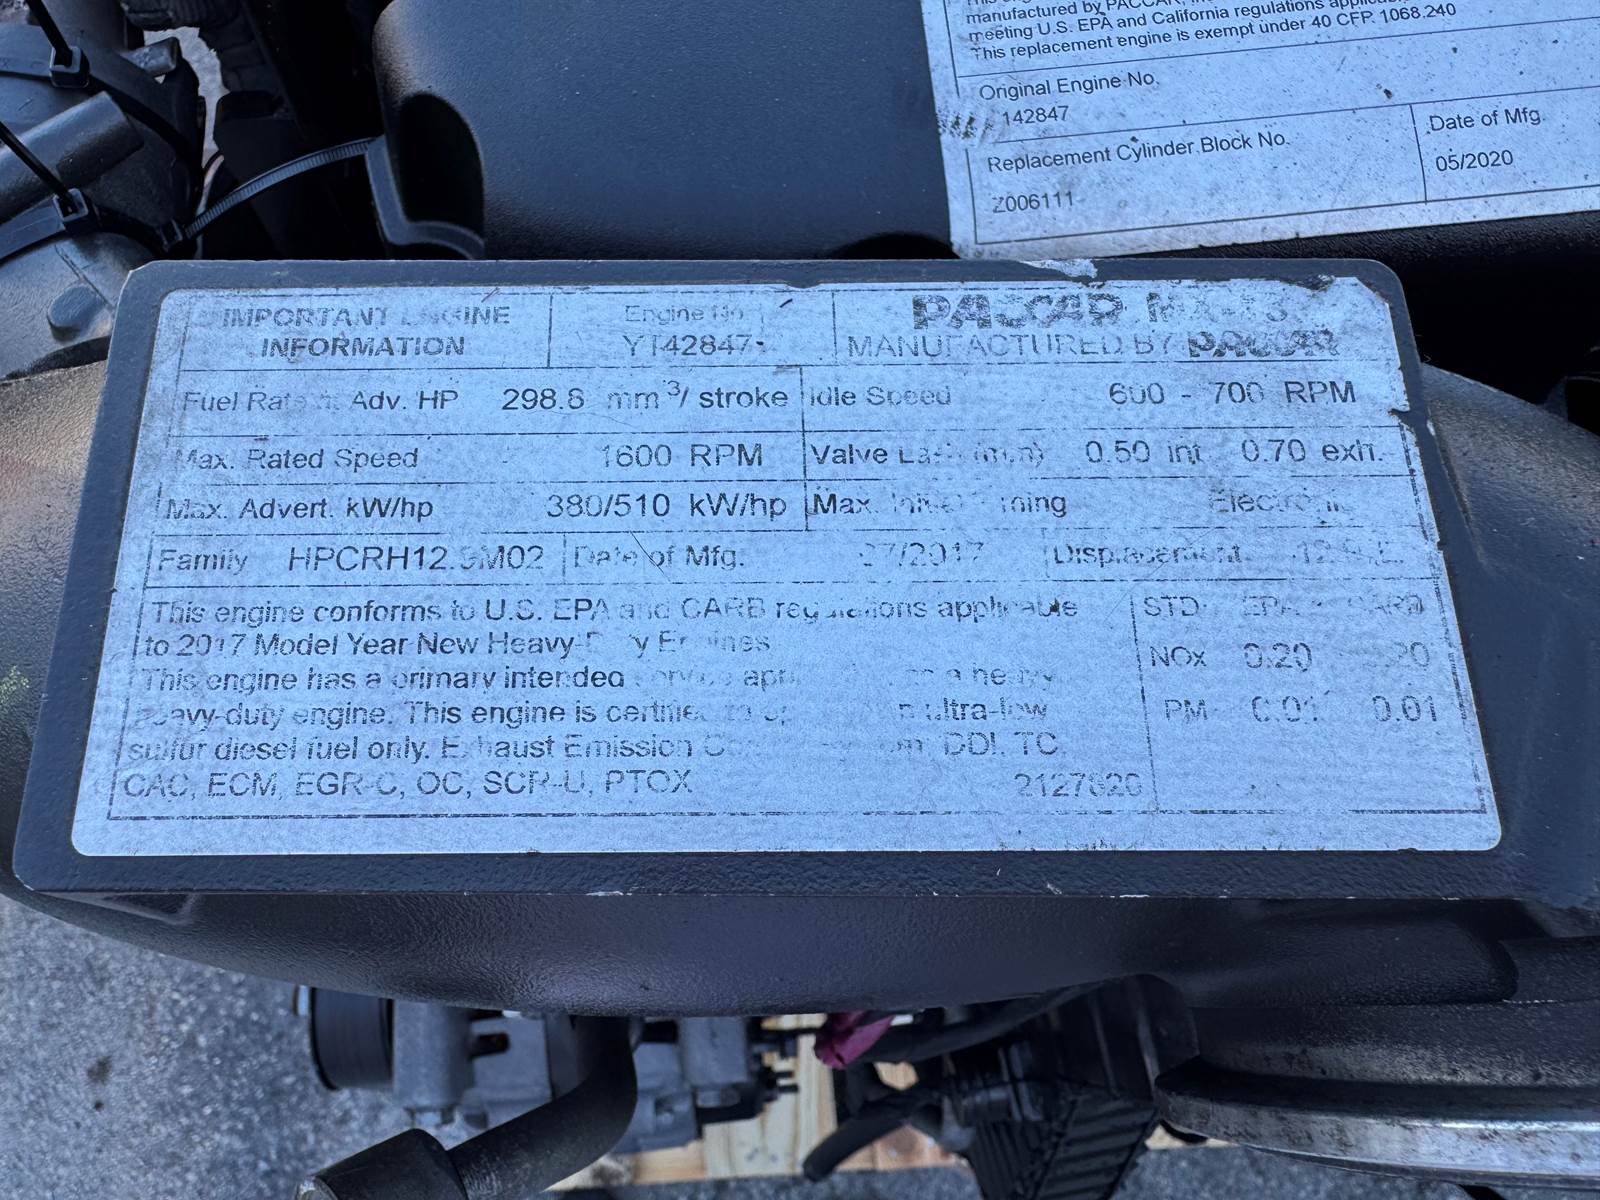 manufactured by PACCAR,
meeting U.S. EPA and California regulations
This replacement engine is exempt under 40 CFR 1068.240
Original Engine No.
142847
Replacement Cylinder Block No.
Z006111
Date of Mfg.
05/2020
IMPORTANT ENGINE
INFORMATION
Engine No
Y142847
PACCAR MX-13
MANUFACTURED BY PACCAR
Fuel Rate Adv. HP 298.6 mm3/ stroke
Idle Speed 600 - 700 RPM
Max. Rated Speed 1600 RPM
Valve Lash (mm) 0.50 int. 0.70 exh.
Max. Advert. kW/hp 380/510 kW/hp
Max. Timing Electronic
Family HPCRH12.9M02
Date of Mfg. 07/2017
Displacement
This engine conforms to U.S. EPA and CARB regulations applicable
to 2017 Model Year New Heavy-Duty Engines
This engine has a primary intended service as a heavy
heavy-duty engine. This engine is certified to on ultra-low
sulfur diesel fuel only. Exhaust Emission DDI, TC,
CAC, ECM, EGR-C, OC, SCR-U, PTOX
STD EPA CARB
NOx 0.20
PM 0.01 0.01